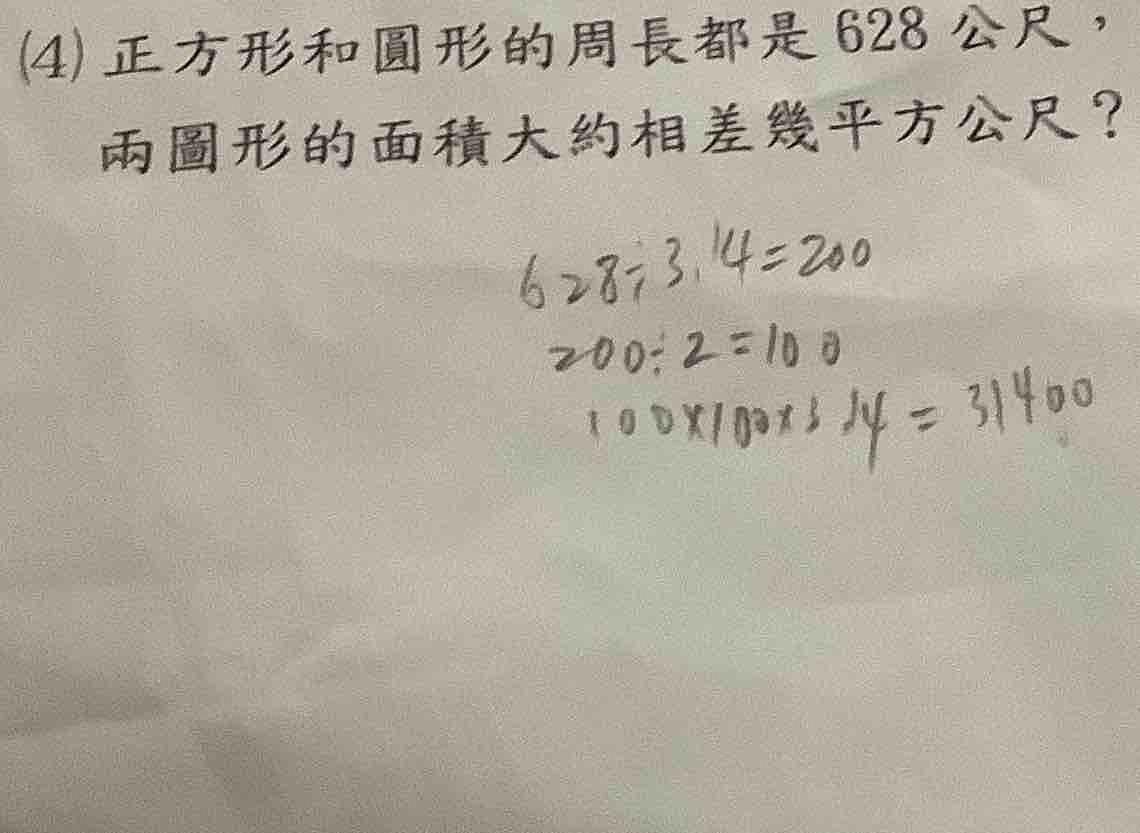 (4) 正方形和圓形的周長都是 628 公尺，
兩圖形的面積大約相差幾平方公尺？
628÷3.14=200
200÷2=100
100×100×3.14=31400